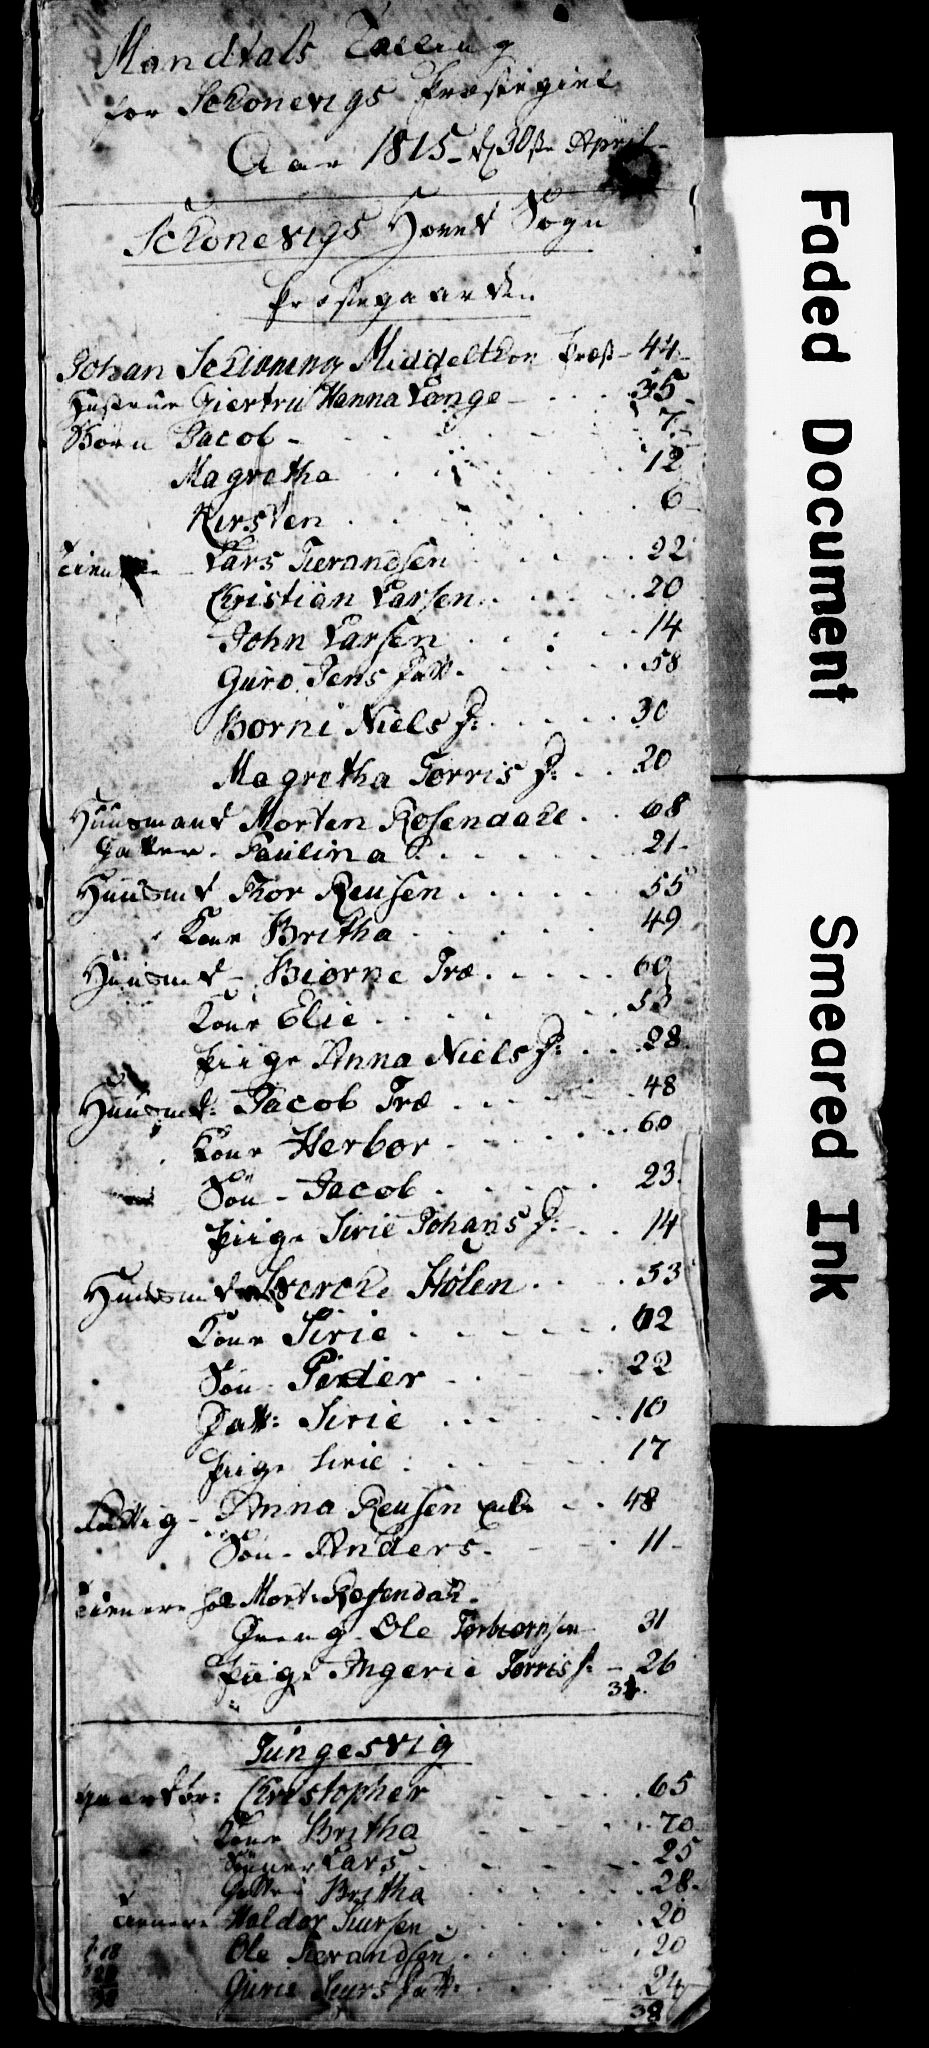 Mandtals Tælling
for Schonevigs Præstegiel
Aar 1815 d 30te April
Schonevigs Hovet Sogn
Præstegaarden
Johan Schioning Middelthon Præst - 44
Hustrue Giertru Hanna Lange - 35
Børn Jacob - 7
Magretha 12
Kirsten 6
Lars Tierandsen 22
Christian Larsen 20
John Larsen 14
Guro Jens Datt. 58
Børni Niels D: 30
Magretha Torris D: 20
Huusmand Morten Rosendahl 68
Datter Paulina 21
Huusmd Thor Reusen 55
Kone Britha 49
Huusmd Biørne Træ 60
Kone Elie 53
Piige Anna Niels D: 28
Huusmd: Jacob Træ 48
Kone Herbor 60
Søn - Jacob 23
Piige Sirie Johans D: 14
Huusmd Hølen 53
Kone Sirie 62
Søn - Peder 22
Datt: Sirie 10
Piige Sirie 17
Fattig - Anna Reusen 48
Søn - Anders 11
Tienere hos Mort. Rosendahl
Dreng - Ole Torbiørnsen 31
Piige Ingerie Torris 26
34
Tungesvig
Christopher 65
Kone Britha 70
Sønner Lars 25
Britha 28
Tienere Haldor Siursen 20
Ole Tierandsen 20
Gurie Siurs Datt: 24
38
Faded Document
Smeared Ink